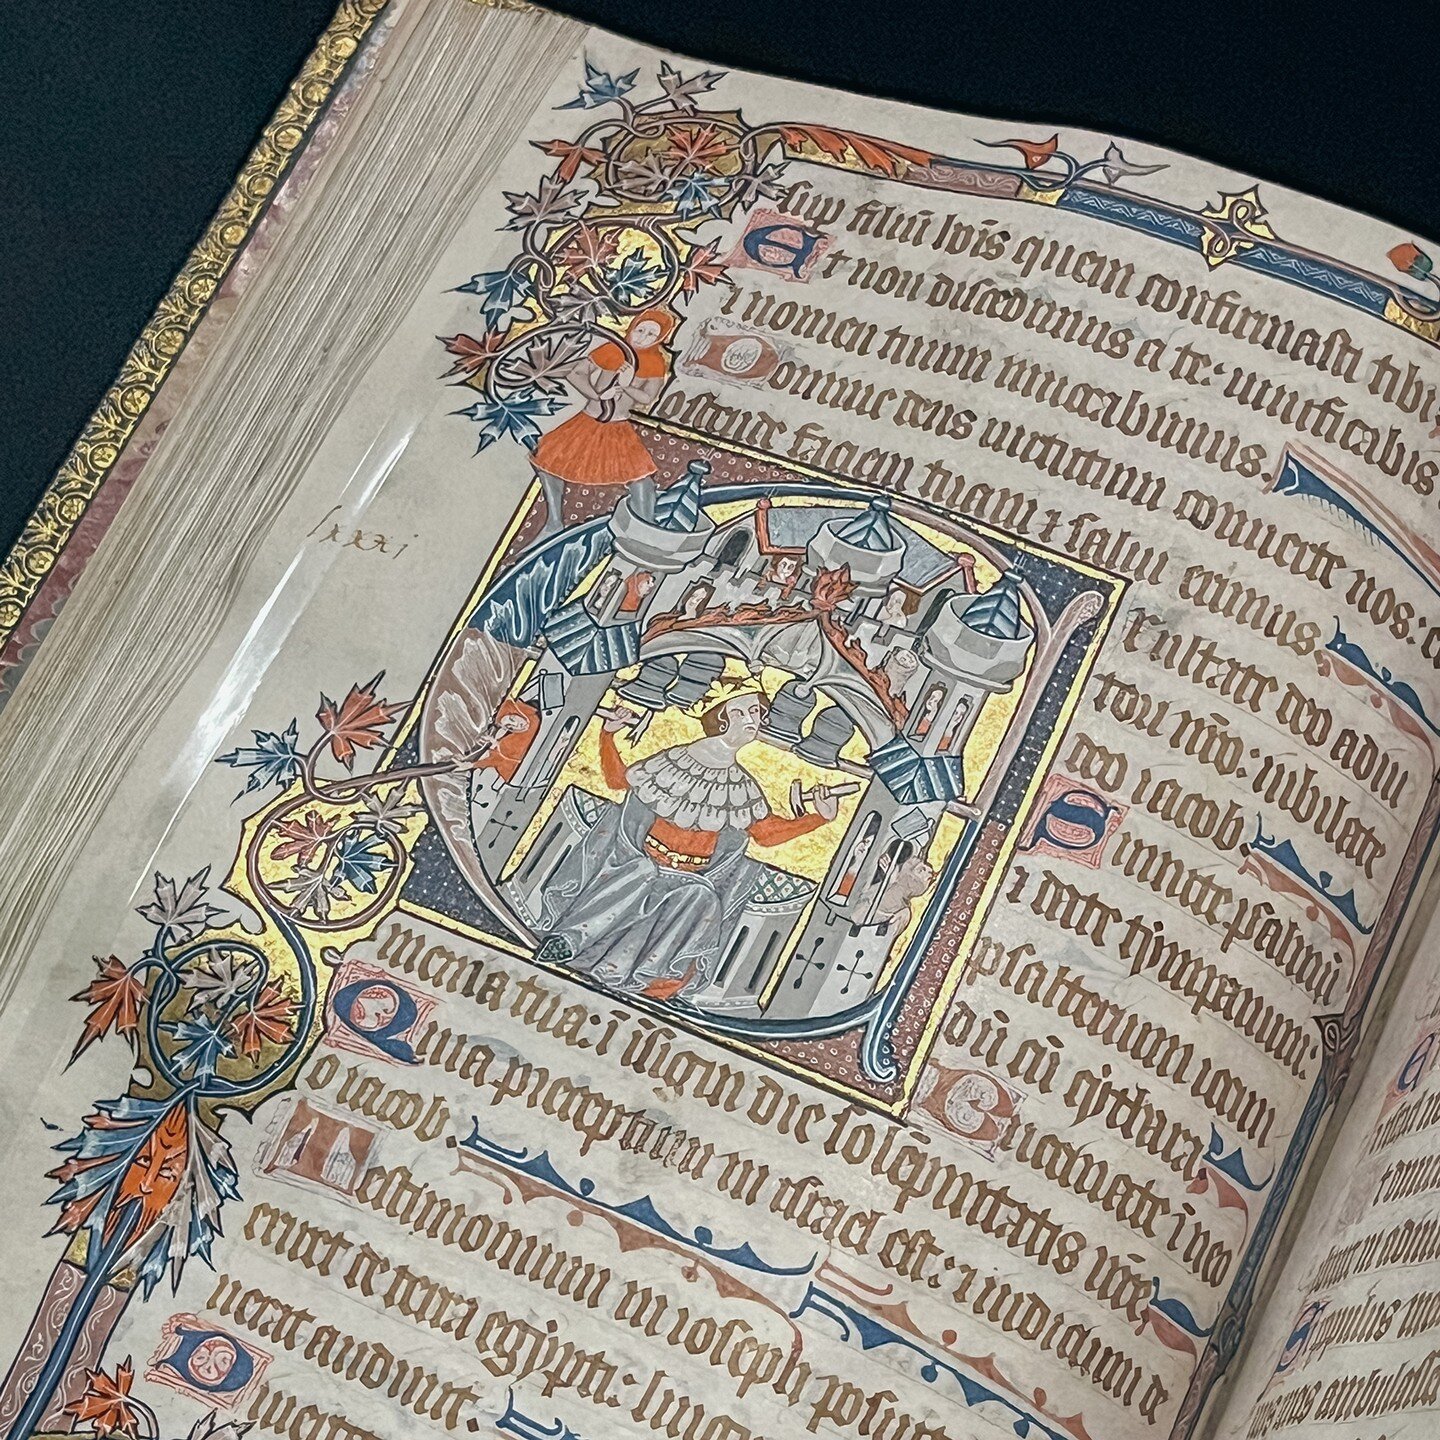 sup filiū hōis quem confirmasti tibi.
Et non discedimus a te: uiuificabis
⁊ nomen tuum inuocabimus.
Domine deus uirtutum conuerte nos: e
ostende faciem tuam ⁊ salui erimus.
lxxxi
Exultate deo adiu
tori nr̄o: iubilate
deo iacob.
Sumite psalmū
⁊ date tympanum:
psalterium iocun
dū cū cythara.
Bucinate ī neo
menia tua: ī īsigni die solēpnitatis vr̄e,
Quia preceptum in israel est: ⁊ iudicium de
o iacob.
Testimonium in ioseph posuit
exiret de terra egypti: lingu
uerat audiuit.